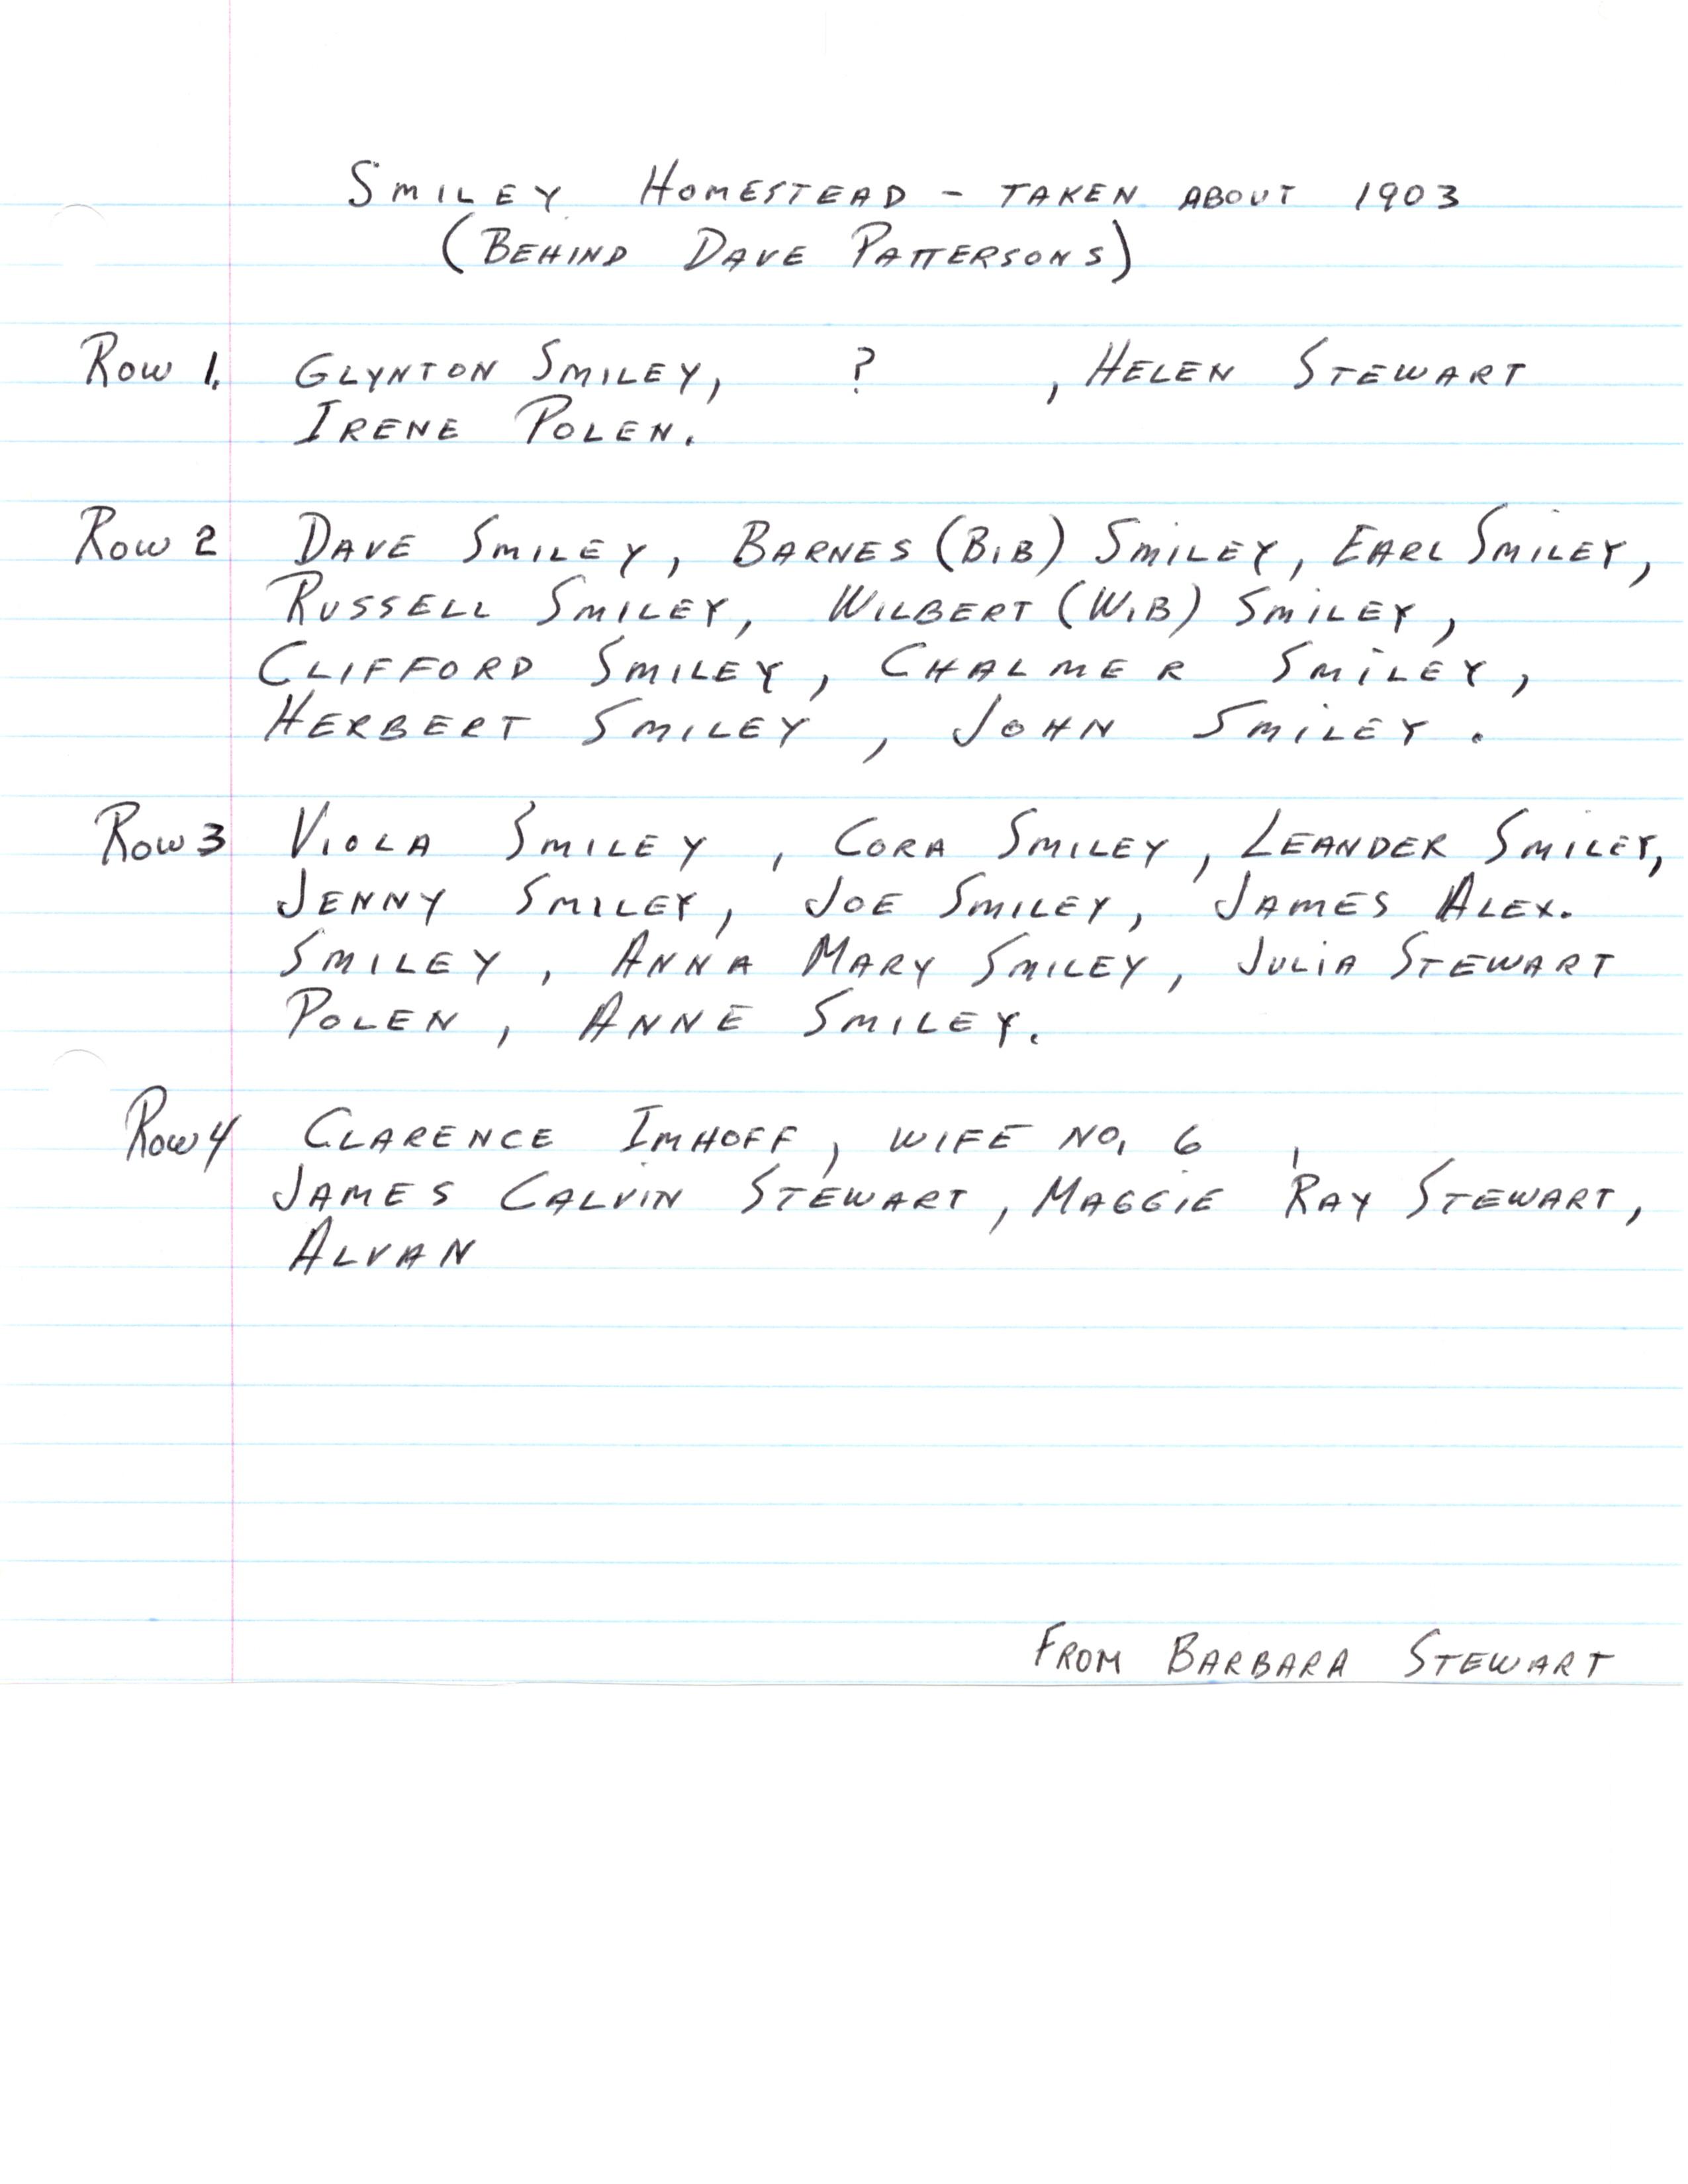 SMILEY HOMESTEAD - TAKEN ABOUT 1903
(BEHIND DAVE PATTERSONS)
ROW 1. GLYNTON SMILEY, ? , HELEN STEWART
IRENE POLEN.
ROW 2 DAVE SMILEY, BARNES (BIB) SMILEY, EARL SMILEY,
RUSSELL SMILEY, WILBERT (WIB) SMILEY,
CLIFFORD SMILEY, CHALMER SMILEY,
HERBERT SMILEY, JOHN SMILEY.
ROW 3 VIOLA SMILEY, CORA SMILEY, LEANDER SMILEY,
JENNY SMILEY, JOE SMILEY, JAMES ALEX.
SMILEY, ANNA MARY SMILEY, JULIA STEWART
POLEN, ANNE SMILEY.
ROW 4 CLARENCE IMHOFF, WIFE NO. 6 ,
JAMES CALVIN STEWART, MAGGIE RAY STEWART,
ALVAN
FROM BARBARA STEWART